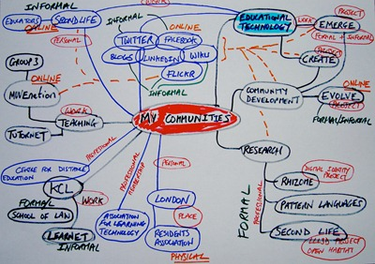 INFORMAL
EDUCATORS
SECONDLIFE
ONLINE
PERSONAL
INFORMAL
ONLINE
TWITTER
FACEBOOK
BLOGS
LINKEDIN
WIKU
FLICKR
INFORMAL
EDUCATIONAL
TECHNOLOGY
WORK
PROJECT
EMERGE
FORMAL + INFORMAL
PROJECT
CREATE
ONLINE
EVOLVE
PROJECT
FORMAL/INFORMAL
COMMUNITY
DEVELOPMENT
GROUP 3
ONLINE
MUVEnation
WORK
TEACHING
TUTORNET
MY COMMUNITIES
RESEARCH
PROFESSIONAL
CENTRE FOR DISTANCE
EDUCATION
KCL
FORMAL
WORK
SCHOOL OF LAW
LEARNET
INFORMAL
PROFESSIONAL
MEMBERSHIP
ASSOCIATION
FOR LEARNING
TECHNOLOGY
PERSONAL
LONDON
PLACE
RESIDENTS
ASSOCIATION
PHYSICAL
FORMAL
PROFESSIONAL
DIGITAL IDENTITY
PROJECT
RHIZOME
PATTERN LANGUAGES
SECOND LIFE
PROJECT
OPEN HABITAT